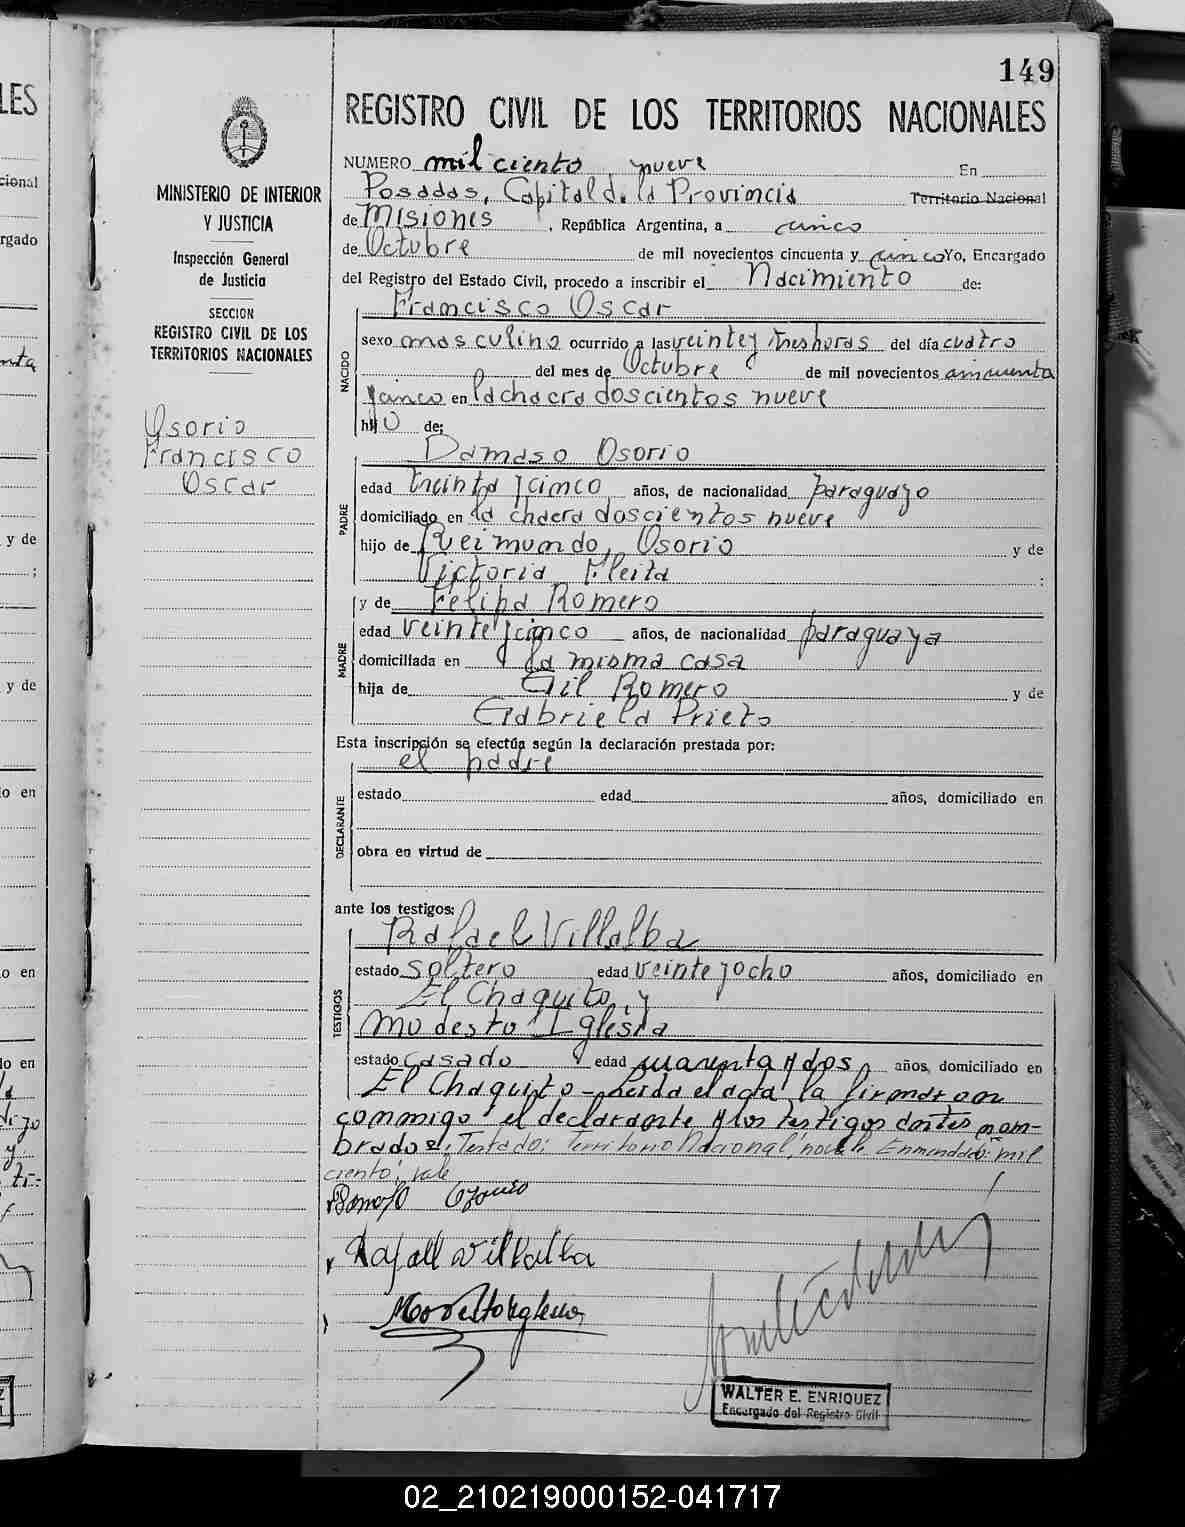 149
REGISTRO CIVIL DE LOS TERRITORIOS NACIONALES
MINISTERIO DE INTERIOR
Y JUSTICIA
Inspección General
de Justicia
SECCION
REGISTRO CIVIL DE LOS
TERRITORIOS NACIONALES
Osorio
Francisco
Oscar
NUMERO mil ciento nueve En
Posadas, Capital de la Provincia Territorio Nacional
de Misiones, República Argentina, a cinco
de Octubre de mil novecientos cincuenta y cinco Yo, Encargado
del Registro del Estado Civil, procedo a inscribir el Nacimiento de:
Francisco Oscar
NACIDO
sexo masculino ocurrido a las veinte y tres horas del día cuatro
del mes de Octubre de mil novecientos cincuenta
y cinco en la chacra doscientos nueve
hijo de:
Damaso Osorio
PADRE
edad treinta y cinco años, de nacionalidad paraguayo
domiciliado en la chacra doscientos nueve
hijo de Reimundo Osorio y de
Victoria Fleita :
y de Felipa Romero
MADRE
edad veinte y cinco años, de nacionalidad paraguaya
domiciliada en la misma casa
hija de Gil Romero y de
Gabriela Prieto
Esta inscripción se efectúa según la declaración prestada por:
el padre
DECLARANTE
estado edad años, domiciliado en
obra en virtud de
ante los testigos:
Rafael Villalba
TESTIGOS
estado soltero edad veinte y ocho años, domiciliado en
El Chaquito, y
Modesto Iglesia
estado casado edad cuarenta y dos años, domiciliado en
El Chaquito - Leida el acta la firmaron
conmigo el declarante y los testigos antes nom-
brados. Testado: Territorio Nacional, no vale. Enmendado: mil
ciento, vale
Rafael Villalba
WALTER E. ENRIQUEZ
Encargado del Registro Civil
02_210219000152-041717